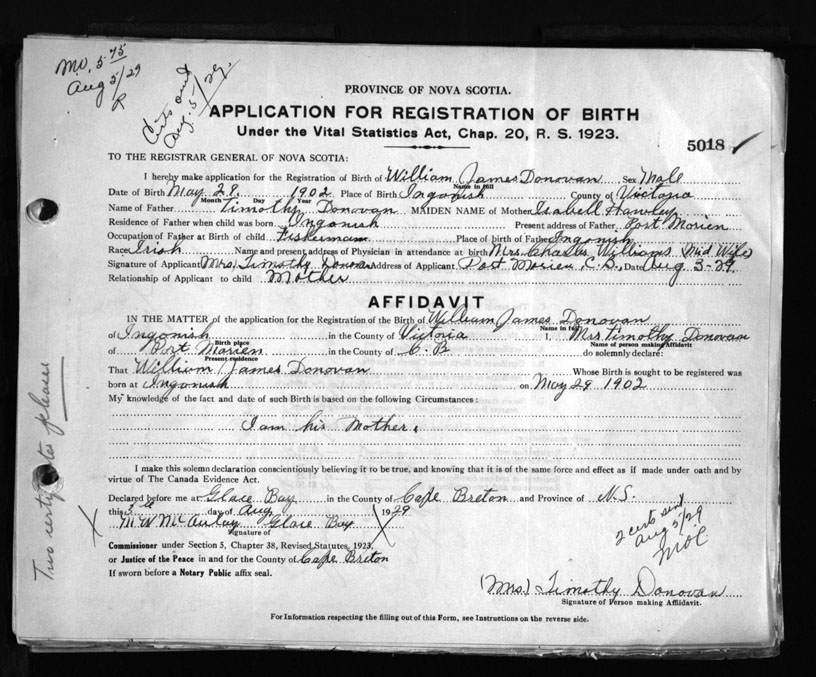 Mo. 5 75
Aug 5/29
R
Certs sent
Aug. 5/29.
PROVINCE OF NOVA SCOTIA.
APPLICATION FOR REGISTRATION OF BIRTH
Under the Vital Statistics Act, Chap. 20, R. S. 1923.
5018 ✓
TO THE REGISTRAR GENERAL OF NOVA SCOTIA:
I hereby make application for the Registration of Birth of William James Donovan Sex Male
Name in full
Date of Birth May 29. 1902 Place of Birth Ingonish County of Victoria
Month Day Year
Name of Father Timothy Donovan MAIDEN NAME of Mother Isabell Hawley
Residence of Father when child was born Ingonish Present address of Father Port Morien
Occupation of Father at Birth of child Fisherman Place of birth of Father Ingonish
Race Irish Name and present address of Physician in attendance at birth Mrs Charles Williams Mid Wife
Signature of Applicant (Mrs) Timothy Donovan Address of Applicant Port Morien C.B. Date Aug 3-29.
Relationship of Applicant to child Mother
AFFIDAVIT
IN THE MATTER of the application for the Registration of the Birth of William James Donovan
Name in full
of Ingonish in the County of Victoria I, Mrs Timothy Donovan
Birth place Name of person making Affidavit
of Port Morien in the County of C. B do solemnly declare:
Present residence
That William James Donovan Whose Birth is sought to be registered was
born at Ingonish on May 29 1902
My knowledge of the fact and date of such Birth is based on the following Circumstances:
I am his Mother.
I make this solemn declaration conscientiously believing it to be true, and knowing that it is of the same force and effect as if made under oath and by
virtue of The Canada Evidence Act.
Declared before me at Glace Bay in the County of Cape Breton and Province of N.S.
this 3rd day of Aug 1929
M W McAulay Glace Bay
Signature of
Commissioner under Section 5, Chapter 38, Revised Statutes, 1923,
or Justice of the Peace in and for the County of Cape Breton
If sworn before a Notary Public affix seal.
2 certs sent
Aug 5/29
(Mrs) Timothy Donovan
Signature of Person making Affidavit.
For Information respecting the filling out of this Form, see Instructions on the reverse side.
Two certificates please